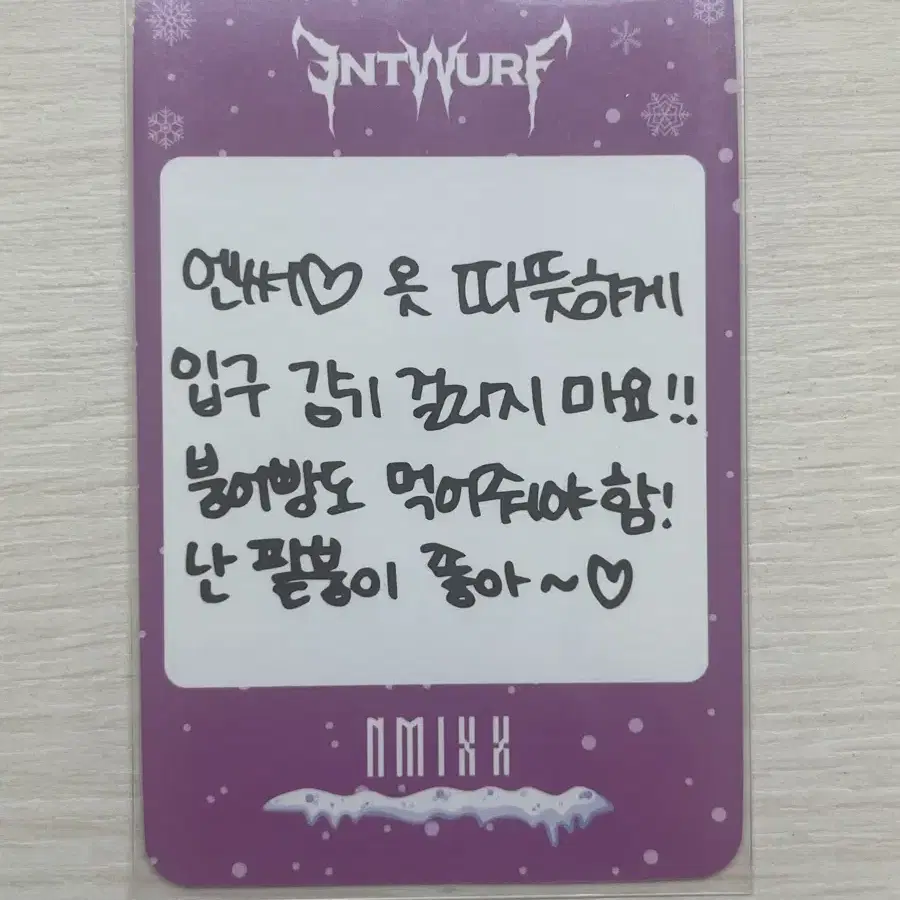 ENTWURF
엔써♡ 옷 따뜻하게
입구 감기 걸리지 마요!!
붕어빵도 먹어줘야함!
난 팥붕이 좋아~♡
NMIXX